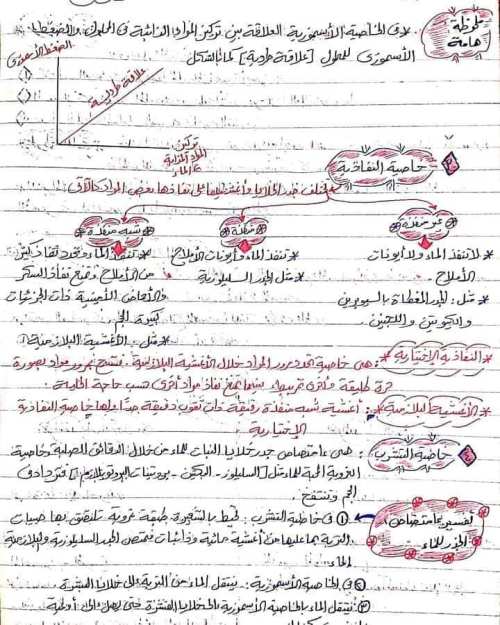 ملحوظة هامة
* فى الخاصية الأسموزية العلاقة بين تركيز المواد الذائبة فى المحلول والضغط
الأسموزى للمحلول [علاقة طردية] كما بالشكل
الضغط الأسموزى
علاقة طردية
تركيز
المواد الذائبة
خاصية النفاذية
تختلف جدر الخلايا وأغشيتها على نفاذها بعض المواد كالآتى
غير منفذة
منفذة
شبه منفذة
* لا تنفذ الماء ولا أيونات
الأملاح.
* مثل: الجدر المغطاة بالسيوبرين
والكيوتين واللجنين.
* تنفذ الماء وأيونات الأملاح
* مثل الجدر السليلوزية
* تنفذ الماء وتحدد نفاذ كثير
من الأملاح وتمنع نفاذ السكر
والأحماض الأمينية ذات الجزيئات
كبيرة الحجم
* مثل: الأغشية البلازمية
* النفاذية الإختيارية * : هى خاصية تحدد مرور المواد خلال الأغشية البلازمية. فتسمح بمرور مواد بصورة
حرة طليقة وأخرى تمر ببطء بينما يمنع نفاذ مواد أخرى حسب حاجة الخلية.
* الأغشية البلازمية * : أغشية شبه منفذة رقيقة ذات ثقوب دقيقة جداً ولها خاصية النفاذية
الإختيارية
خاصية التشرب
: هى امتصاص جدر خلايا النبات للماء من خلال الدقائق الصلبة وخاصة
الغروية المحبة للماء مثل [السليلوز - البكتين - بروتينات البروتوبلازم] فتزداد فى
الحجم وتنتفخ.
تفسير امتصاص
الجذر للماء
① فى خاصية التشرب: تحيط بالشعيرة طبقة غروية تلتصق بها حبيبات
التربة بما عليها من أغشية مائية وذائبات فتمتص الجدر السليلوزية والبلازمية
الماء
② فى الخاصية الأسموزية: ينتقل الماء من التربة إلى خلايا البشرة
③ ينتقل الماء بالخاصية الأسموزية إلى خلايا القشرة حتى يصل إلى أوعية